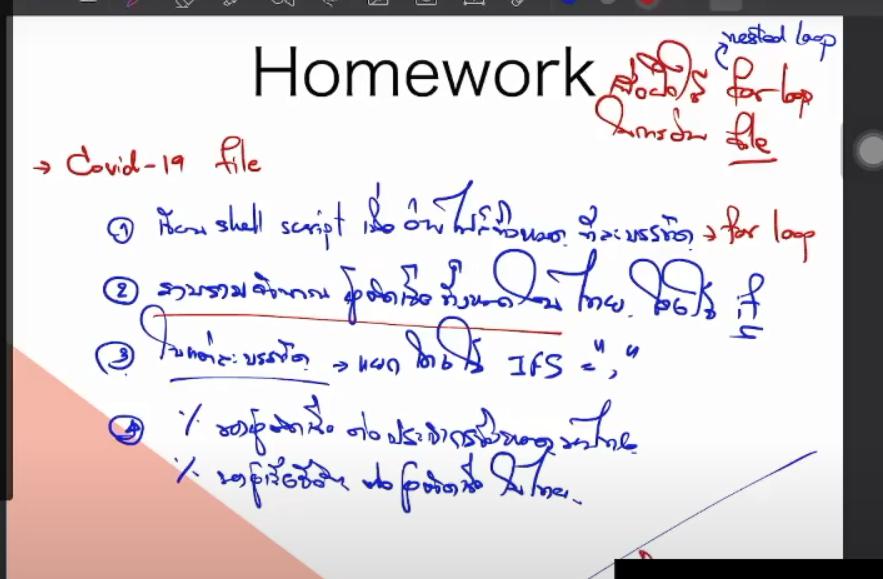 Homework
nested loop
ต้องใช้ for loop
ในการอ่าน file
→ Covid-19 file
① เขียน shell script เพื่ออ่านไฟล์ทั้งหมด ทีละบรรทัด → for loop
② รวบรวมจำนวน ผู้ติดเชื้อ ทั้งหมดในไทย โดยใช้ if
③ ในแต่ละบรรทัด → แยก โดยใช้ IFS = ","
④ % ของผู้ติดเชื้อ ต่อ ประชากรทั้งหมดในไทย
% ของผู้เสียชีวิต ต่อ ผู้ติดเชื้อ ในไทย